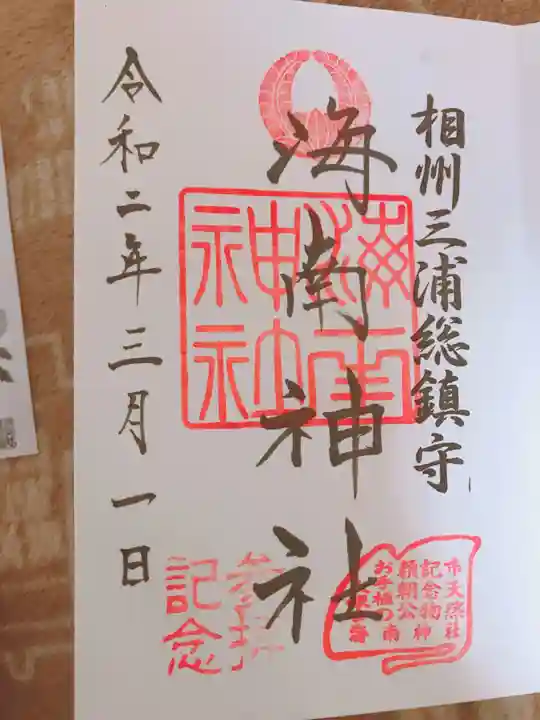 相州三浦総鎮守
海南神社
令和二年三月一日
海南神社
参拝
記念
市天然
記念物
頼朝公
お手植の